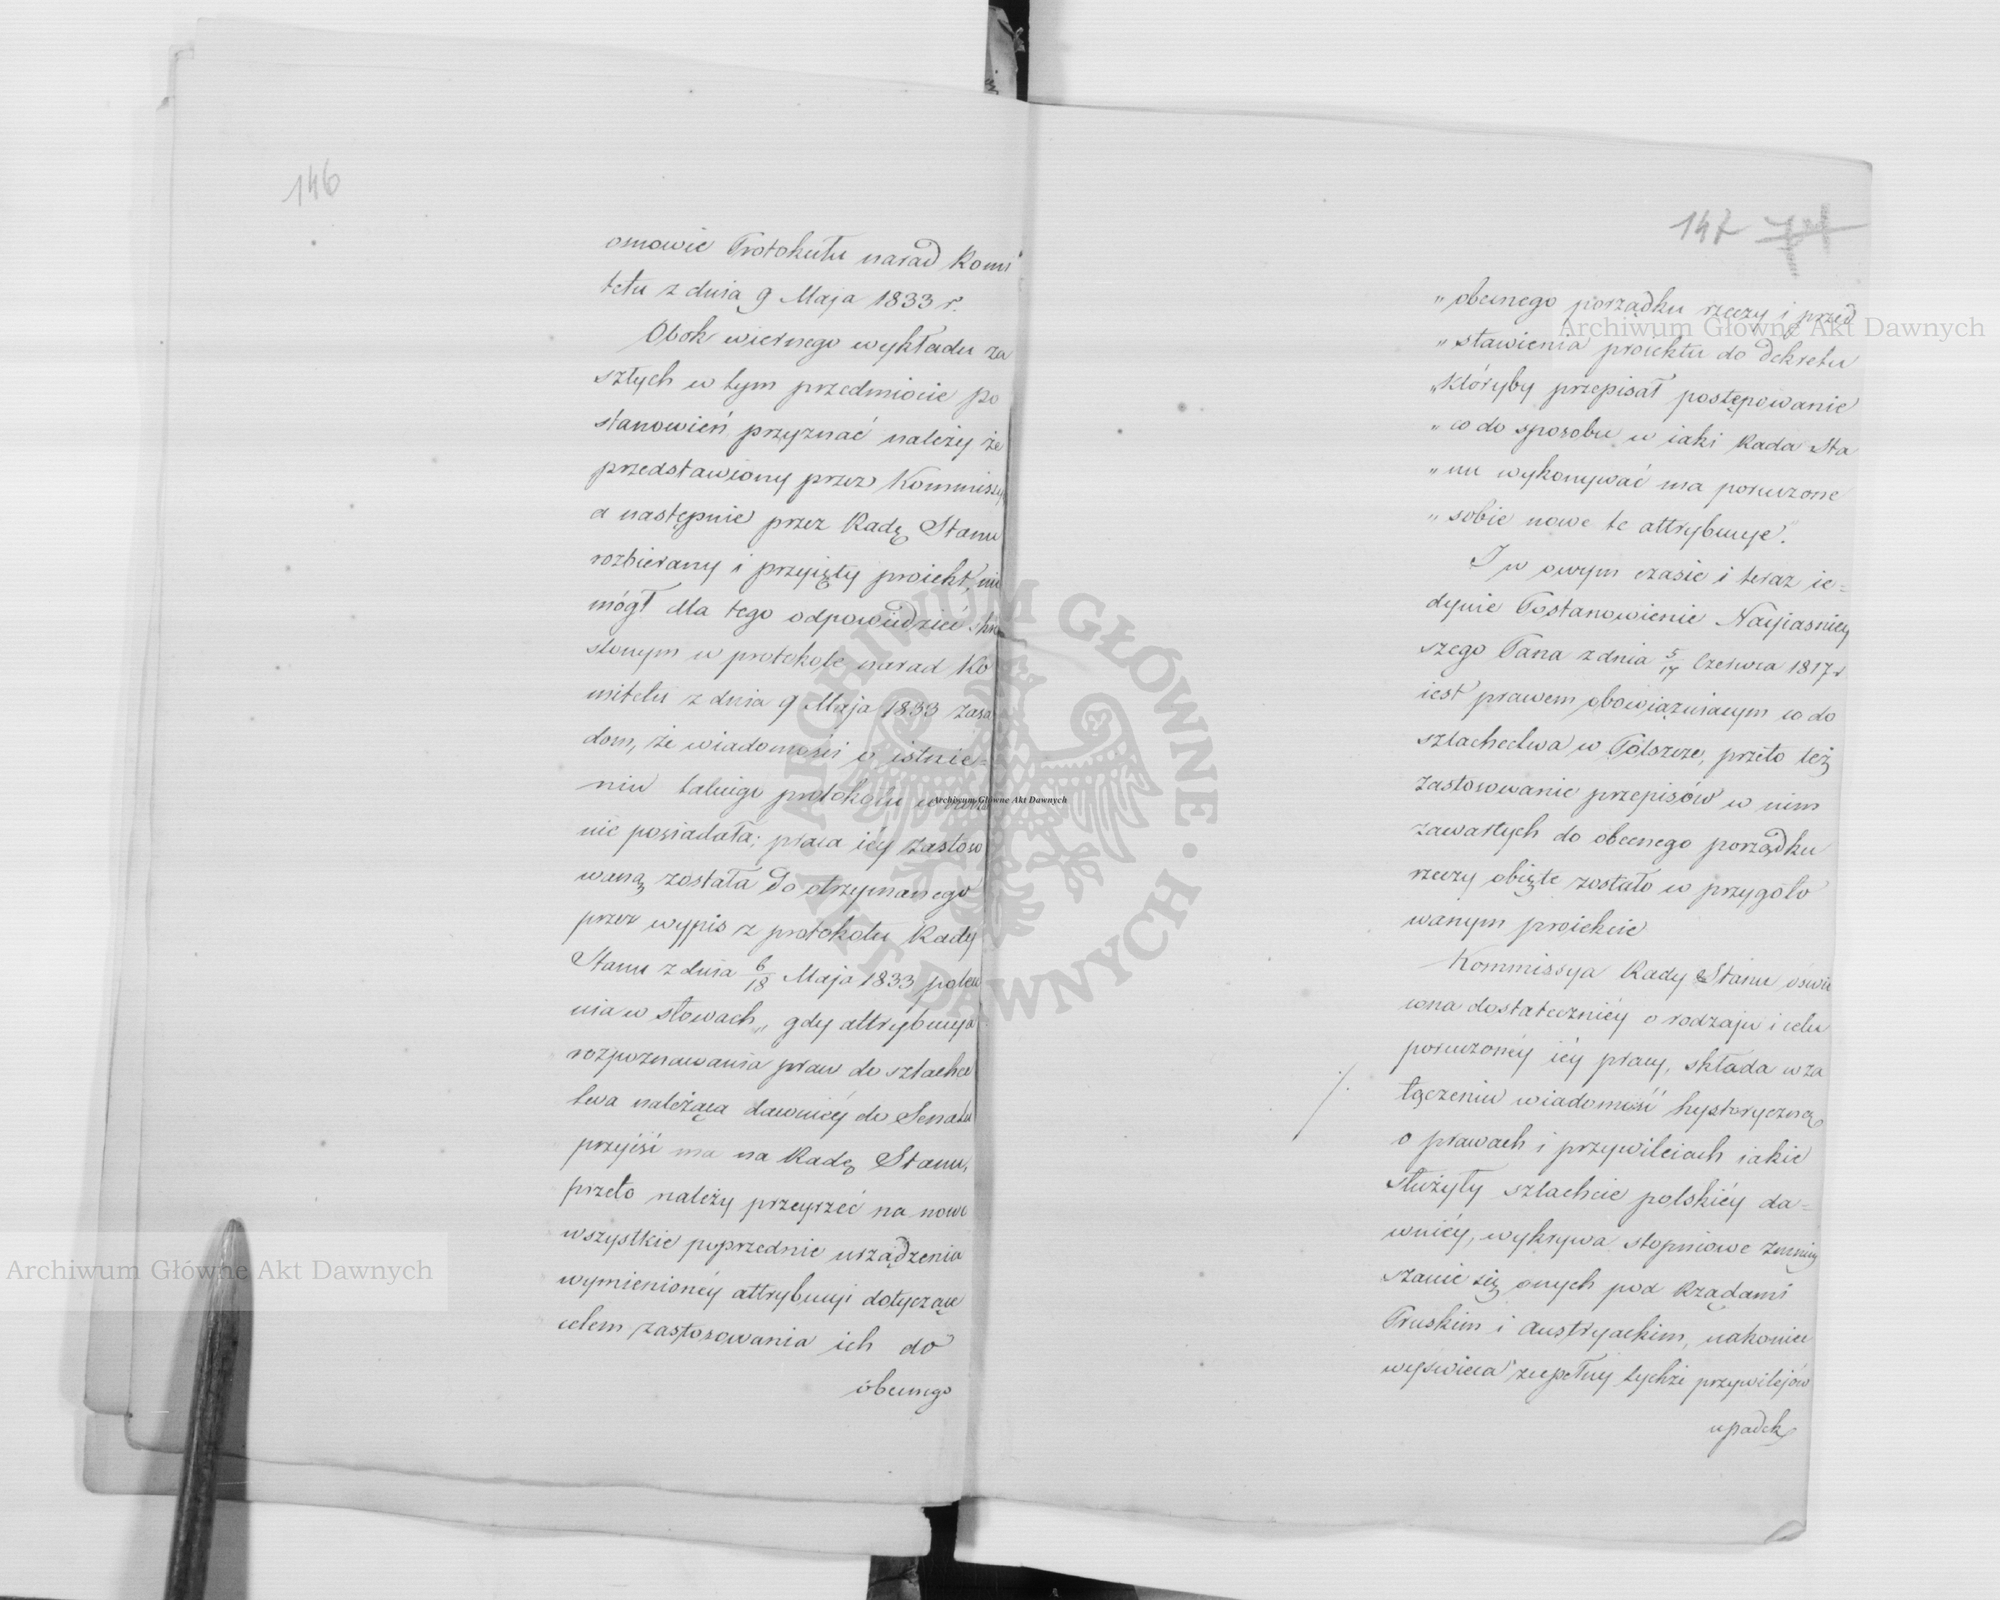 146
osnowie Protokułu narad Komi
tetu z dnia 9 Maja 1833 r.
Obok wiernego wykładu za
szłych w tym przedmiocie po
stanowień przyznać należy że
przedstawiony przez Kommissyą
a następnie przez Radę Stanu
rozbierany i przyięty proiekt, nie
mógł dla tego odpowiedzieć skre
slonym w protokole narad Ko
mitetu z dnia 9 Maja 1833 zasa
dom, że wiadomości o istnie=
niu takiego protokołu
nie posiadała; praca iéy zastoso
waną została do otrzymanego
przez wypis z protokołu Rady
Stanu z dnia 6/18 Maja 1833 polece
nia w słowach „ gdy attrybucya
rozpoznawania praw do szlachec
twa należąca dawniéy do Senatu
przejść ma na Radę Stanu,
przeto należy przeyrzeć na nowo
wszystkie poprzednie urządzenia
wymienionéy attrybucyi dotyczące
celem zastosowania ich do
obecnego
147
„ obecnego porządku rzeczy i przed
„ stawienia proiektu do dekretu
„ któryby przepisał postępowanie
„ co do sposobu w iaki Rada Sta
„ nu wykonywać ma poruczone
„ sobie nowe te attrybucye."
I w owym czasie i teraz ie=
dynie Postanowienie Nayiasniey
szego Pana z dnia 5/17 Czerwca 1817 r
iest prawem obowiązuiącym co do
szlachectwa w Polszcze, przeto też
zastosowanie przepisów w nim
zawartych do obecnego porządku
rzeczy obięte zostało w przygoto
wanym proiekcie
Kommissya Rady Stanu oswie
cona dostateczniéy o rodzaju i celu
poruczonéy iéy pracy, składa w za
łączeniu wiadomość hystoryczną
o prawach i przywileiach iakie
służyły szlachcie polskiéy da=
wniéy, wykrywa stopniowe zmniey
szanie się onych pod Rządami
Pruskim i Austryackim, nakoniec
wyświeca zupełny tychże przywilejów
upadek
Archiwum Główne Akt Dawnych
Archiwum Główne Akt Dawnych
Archiwum Główne Akt Dawnych
ARCHIWUM GŁÓWNE · AKT DAWNYCH ·